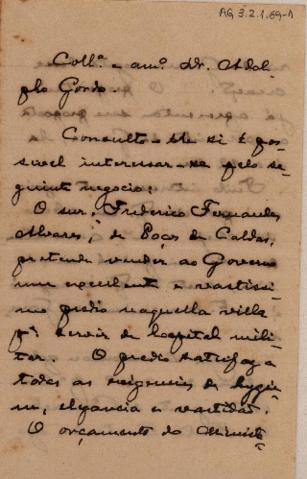 AG 3.2.1.69-1
Coll.ª e am.º Dr. Adol-
pho Gordo.
Consulto-lhe si é pos-
sivel interessar-se pelo se-
guinte negocio:
O snr. Frederico Fernandes
Alvares, de Poços de Caldas,
pretende vender ao Governo
um excellente e vastissi-
mo predio naquella villa
p.ª servir de hospital mili-
tar. O predio satisfaz a
todas as exigencias de hygie-
ne, elegancia e vastidão.
O orçamento do Ministe-